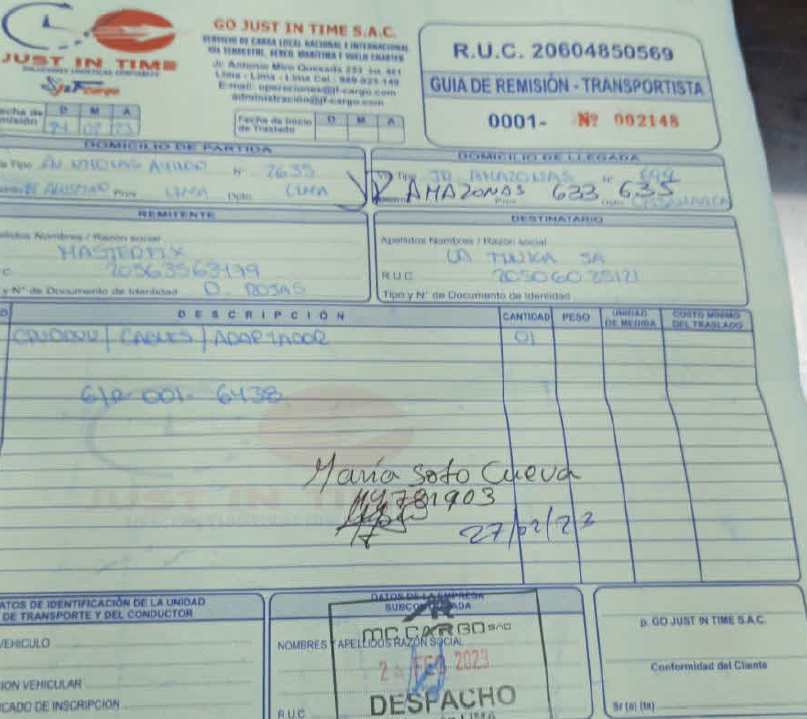 JUST IN TIME
SOLUCIONES LOGISTICAS CONFIABLES
Cargo
GO JUST IN TIME S.A.C.
SERVICIO DE CARGA LOCAL NACIONAL E INTERNACIONAL
VIA TERRESTRE, AEREO, MARITIMA Y VUELO CHARTER
Jr. Antonio Miro Quesada 253 Int. 401
Lima - Lima - Lima Cel.: 989-829-149
E-mail: operaciones@jf-cargo.com
administración@jf-cargo.com
R.U.C. 20604850569
GUIA DE REMISIÓN - TRANSPORTISTA
0001- Nº 002148
echa de misión D M A
24 02 23
Fecha de Inicio de Traslado D M A
DOMICILIO DE PARTIDA
Tipo AV NICOLAS Nº 2635
Prov. LIMA Dpto. LIMA
DOMICILIO DE LLEGADA
Tipo JR AMAZONAS Nº
AMAZONAS 633 635
Prov. Dpto. CAJAMARCA
REMITENTE
ellidos Nombres / Razón social
MASTEDTIX
C. 20563563499
y Nº de Documento de Identidad D. ROSAS
DESTINATARIO
Apellidos Nombres / Razón social
LA TINKA SA
R.U.C. 20506025121
Tipo y Nº de Documento de Identidad
DESCRIPCIÓN CANTIDAD PESO UNIDAD DE MEDIDA COSTO MINIMO DEL TRASLADO
CABLES ADAPTADOR 01
001- 6438
JUST IN TIME
Maria Soto Cueva
44781903
27/02/23
ATOS DE IDENTIFICACIÓN DE LA UNIDAD
DE TRANSPORTE Y DEL CONDUCTOR
VEHICULO
ION VEHICULAR
ICADO DE INSCRIPCION
DATOS DE LA EMPRESA
SUBCONTRATADA
NOMBRES Y APELLIDOS RAZON SOCIAL
R.U.C.
MC CARGO SAC
FEB 2023
DESPACHO
LIMA
p. GO JUST IN TIME S.A.C.
Conformidad del Cliente
Sr (a) (ta)